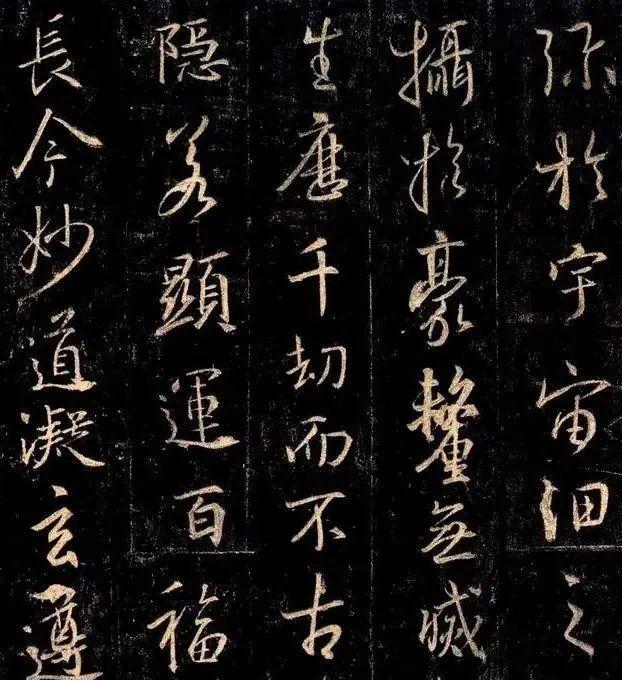 弥於宇宙細之
攝於豪釐無滅
生歷千劫而不古
隱若顯運百福
長今妙道凝玄遵